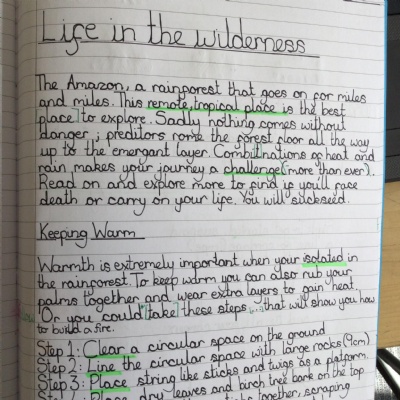 Life in the wilderness
The Amazon, a rainforest that goes on for miles
and miles. This remote, tropical place is the best
place to explore. Sadly nothing comes without
danger ; preditors rome the forest floor all the way
up to the emergant layer. Combitnations of heat and
rain makes your journey a challenge (more than ever).
Read on and explore more to find if you'll face
death or carry on your life. You will suckseed.
Keeping Warm
Warmth is extremely important when your isolated in
the rainforest. To keep warm you can also rub your
palms together and wear extra layers to gain heat.
Or you could [take] these steps ... that will show you how
to build a fire.
Step 1: Clear a circular space on the ground
Step 2: Line the circular space with large rocks (9cm)
Step 3: Place string like sticks and twigs as a platform.
Place dry leaves and birch tree bark on the top
sticks together, scraping